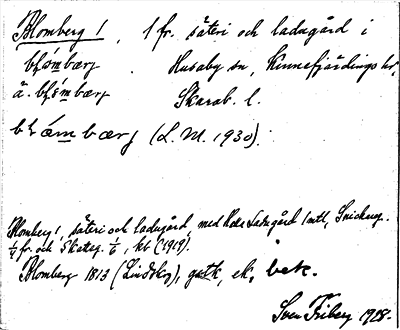 Blomberg 1, 1 fr. säteri och ladugård i
blómbærj. Husaby sn, Kinnefjärdings hd,
ä. blómbærj Skarab. l.
blómbærj (L. M. 1930).
Blomberg 1, säteri och ladugård, med Hela Ladugård 1 mtl,
1/4 fr. och Skatteg. 1/6, kb (1919).
Blomberg 1813 (Lindskog), gatk, ek, bek.
Sven Friberg 1928.